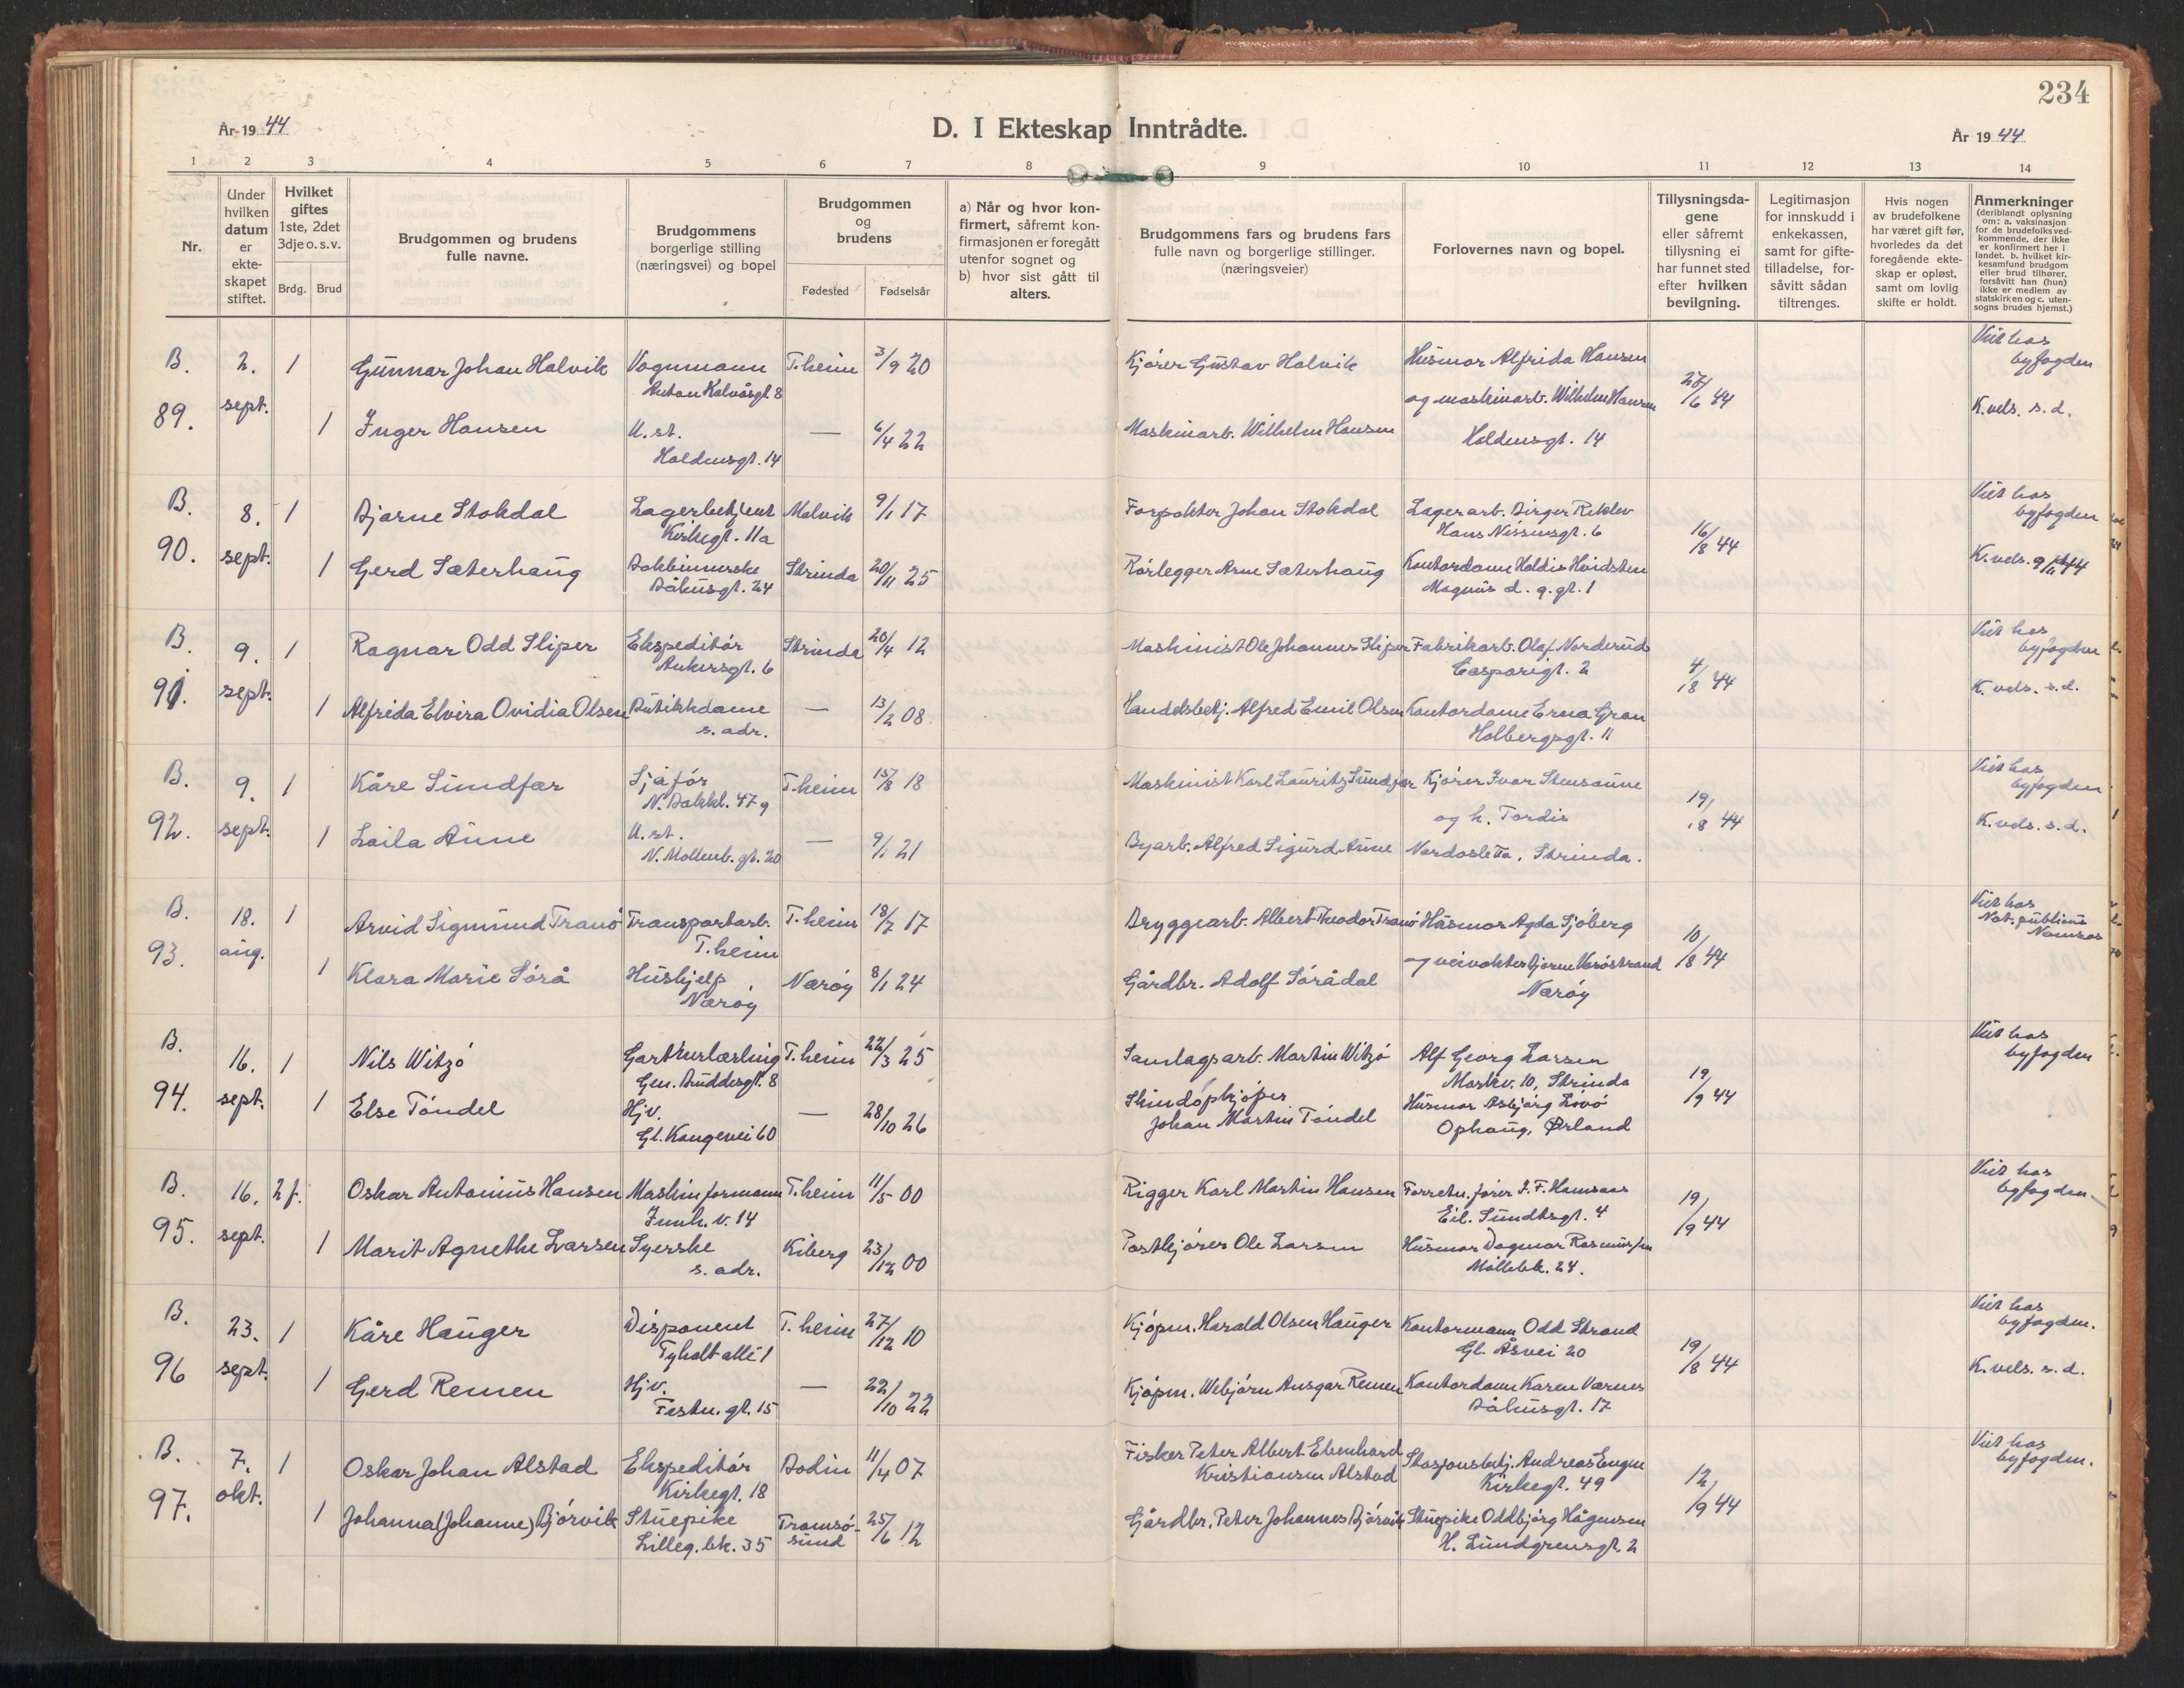 234
År 19 44
D. I Ekteskap Inntrådte.
År 19 44
1 2 3 4 5 6 7 8 9 10 11 12 13 14
Nr.
Under hvilken datum er ekteskapet stiftet.
Hvilket giftes 1ste, 2det 3dje o. s. v.
Brdg. Brud
Brudgommen og brudens fulle navne.
Brudgommens borgerlige stilling (næringsvei) og bopel
Brudgommen og brudens
Fødested Fødselsår
a) Når og hvor konfirmert, såfremt konfirmasjonen er foregått utenfor sognet og
b) hvor sist gått til alters.
Brudgommens fars og brudens fars fulle navn og borgerlige stillinger. (næringsveier)
Forlovernes navn og bopel.
Tillysningsdagene eller såfremt tillysning ei har funnet sted efter hvilken bevilgning.
Legitimasjon for innskudd i enkekassen, samt for giftetilladelse, forsåvitt sådan tiltrenges.
Hvis nogen av brudefolkene har været gift før, hvorledes da det foregående ekteskap er opløst, samt om lovlig skifte er holdt.
Anmerkninger
(deriblandt oplysning om: a. vaksinasjon for de brudefolks vedkommende, der ikke er konfirmert her i landet. b. hvilket kirkesamfund brudgom eller brud tilhører, forsåvitt han (hun) ikke er medlem av statskirken og c. utensogns brudes hjemst.)
B. 2. 1 Gunnar Johan Halvik Vognmann T.heim 3/9 20 Kjører Gustav Halvik Husmor Alfrida Hansen Viet hos
Anton Kalvåsgt. 8 og maskinarb. Wilhelm Hansen 27/6 44 byfogden
89. sept. 1 Inger Hansen U. st. — 6/4 22 Maskinarb. Wilhelm Hansen Haldensgt. 14 K.vels. s. d.
Haldensgt. 14
B. 8. 1 Bjarne Stokdal Lagerbetjent Malvik 9/1 17 Forpakter Johan Stokdal Lagerarb. Birger Reklev Viet hos
Kirkegt. 11a Hans Nissensgt. 6 16/8 44 byfogden
90. sept. 1 Gerd Sæterhaug Strinda 20/11 25 Rørlegger Arne Sæterhaug Kontordame Holdis Hindsten K.vels. 9/11 44
Båhusgt. 24 Magnus d. g. gt. 1
B. 9. 1 Ragnar Odd Sliper Ekspeditør Strinda 20/4 12 Maskinist Ole Johannes Sliper Fabrikarb. Olaf Norderud Viet hos
Ankersgt. 6 Casparigt. 2 4/8 44 byfogden
91. sept. 1 Alfrida Elvira Ovidia Olsen Butikkdame — 13/2 08 Handelsbetj. Alfred Emil Olsen Kontordame Erna Gran K. vels. s. d.
s. adr. Holbergsgt. 11
B. 9. 1 Kåre Sundfær Sjåfør T.heim 15/8 18 Maskinist Karl Lauritz Sundfær Kjører Ivar Stensaune Viet hos
N. Bakkl. 47 g og h. Tordis 19/8 44 byfogden
92. sept. 1 Laila Aune U. st. — 9/1 21 Byarb. Alfred Sigurd Aune Nardosletta, Strinda. K.vels. s. d.
N. Mollenb. gt. 20
B. 18. 1 Arvid Sigmund Tranø Transportarb. T.heim 18/7 17 Bryggearb. Albert Theodor Tranø Husmor Agda Sjöberg Viet hos
T.heim 10/8 44 Not. publicus Namsos
93. aug. 1 Klara Marie Sørå Hushjelp Nærøy 8/1 24 Gårdbr. Adolf Sørådal og veivokter Bjarne Værøstrand
Nærøy Nærøy
B. 16. 1 Nils Witzø Gartnerlærling T.heim 22/3 25 Samlagsarb. Martin Witzø Alf Georg Larsen Viet hos
Gen. Buddesgt. 8 Markv. 10, Strinda 19/9 44 byfogden
94. sept. 1 Else Tøndel Hjv. — 28/10 26 Skindopkjøper Husmor Asbjørg Lovø
Gl. Kongevei 60 Johan Martin Tøndel Ophaug, Ørland
B. 16. 2 f. Oskar Antonius Hansen Maskinformann T.heim 11/5 00 Rigger Karl Martin Hansen Forretn.fører J. F. Hamsaas Viet hos
Innh. v. 14 Eil. Sundtsgt. 4 19/9 44 byfogden
95. sept. 1 Marit Agnethe Larsen Syerske Kiberg 23/12 00 Postkjører Ole Larsen Husmor Dagmar Rasmussen
s. adr. Møllebk. 24.
B. 23. 1 Kåre Hauger Disponent T.heim 27/12 10 Kjøpm. Harald Olsen Hauger Kontormann Odd Strand Viet hos
Tyholt allé 1 Gl. Åsvei 20 19/8 44 byfogden.
96 sept. 1 Gerd Remen Hjv. — 22/10 22 Kjøpm. Webjørn Ansgar Remen Kontordame Karen Værnes K.vels. s. d.
Festn. gt. 15 Båhusgt. 17
B. 7. 1 Oskar Johan Alstad Ekspeditør Bodin 11/4 07 Fisker Peter Albert Ebenhard Stasjonsbetj. Andreas Engen Viet hos
Kirkegt. 18 Kristiansen Alstad Kirkegt. 49 12/9 44 byfogden.
97. okt. 1 Johanna (Johanne) Bjørvik Stuepike Tromsøsund 25/6 12 Gårdbr. Peter Johannes Bjørvik Stuepike Oddbjørg Hågensen
Lilleg. bk. 35 H. Lundgrensgt. 2